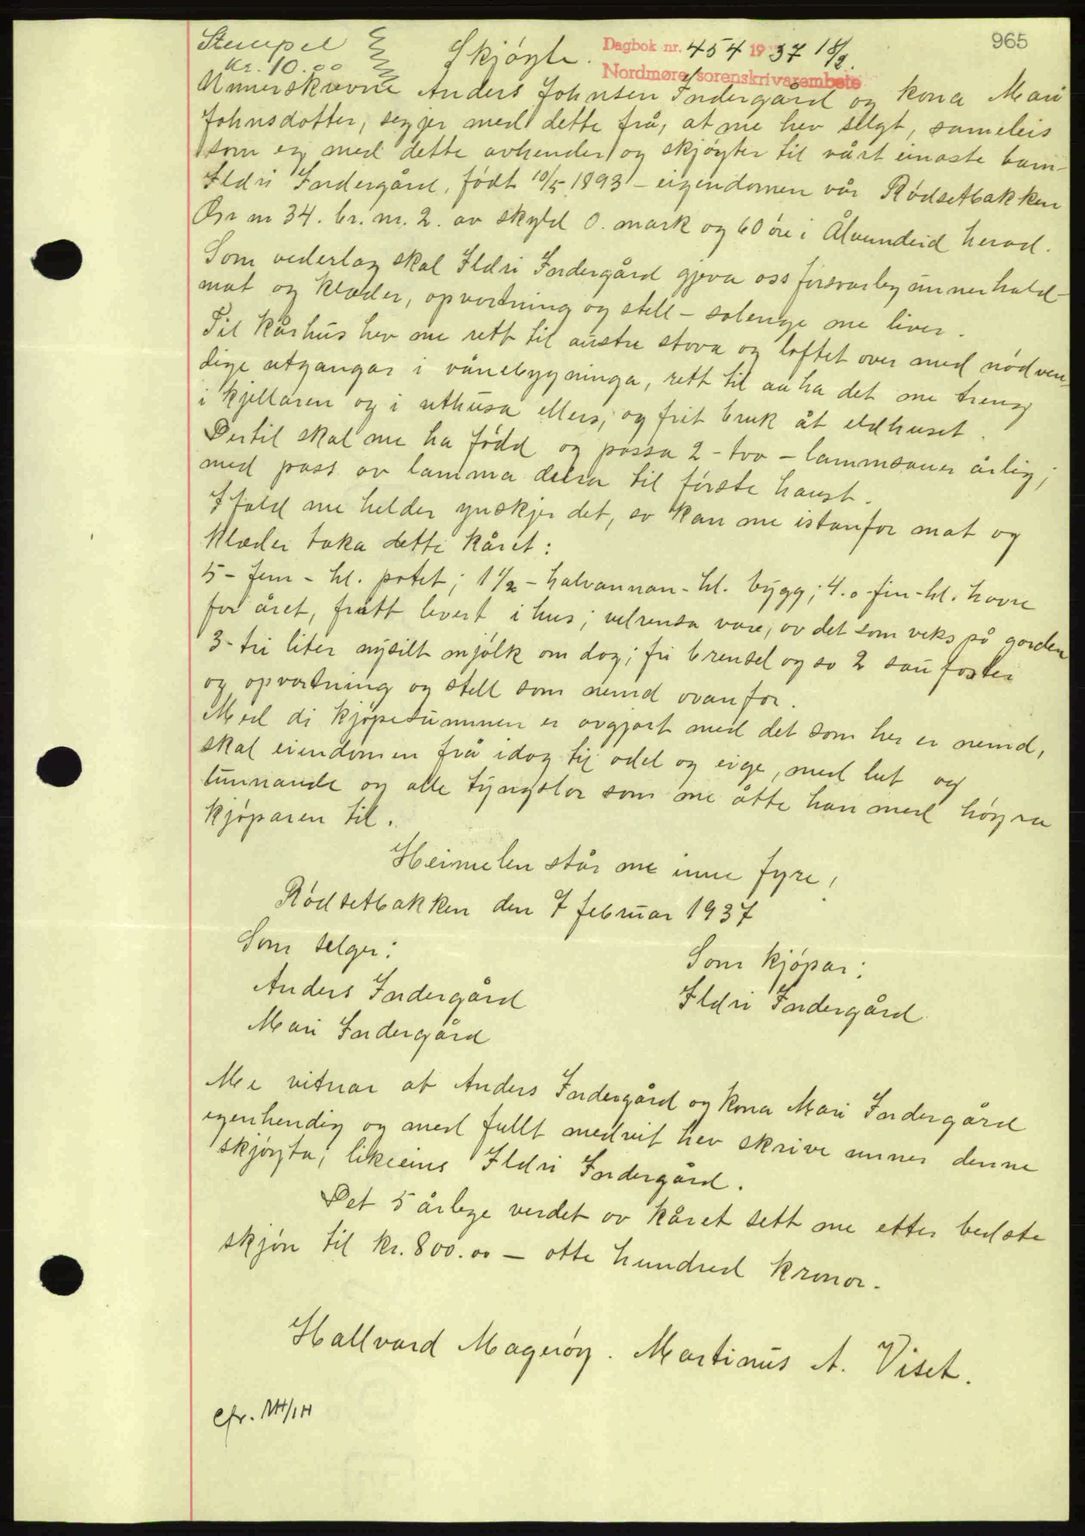 965
Stempel
kr. 10.00
Skjøyte.
Dagbok nr. 454 1937 18/2.
Nordmøre sorenskrivarembete
Unnerskrivne Anders Johnsen Indergård og kona Mari
Johnsdotter, segjer med dette frå, at me hev selgt, sameleis
som eg med dette avhender og skjøyter til vårt einaste barn-
Ildri Indergård, født 10/5 1893 - eigendomen vår Rødsetbakken
Gr nr 34. br. nr. 2. av skyld 0. mark og 60 øre i Ålvundeid herad.
Som vederlag skal Ildri Indergård gjeva oss forsvarleg unnerhald-
mat og klæder, opvartning og stell - solenge me liver.
Til kårhus hev me rett til austre stova og loftet over med nødven-
dige utgangar i vånebygninga, rett til aa ha det me treng
i kjellaren og i uthusa ellers, og frit bruk åt eldhuset.
Dertil skal me ha fødd og passa 2 - tvo - lammsauer årlig;
med pass av lamma deira til første haust.
Ifald me helder ynskjer det, so kan me istanfor mat og
klæder taka dette kåret:
5 - fem - hl. potet; 1 1/2 - halvannan - hl. bygg; 4.- fire - hl. havre
for året, frått levert i hus; velrensa vare, av det som veks på garden
3 - tri liter nysilt mjølk om dag; fri brensel og so 2 saufoster
og opvartning og stell som nemd ovanfor.
Med di kjøpesummen er avgjort med det som her er nemd,
skal eiendomen frå idag til odel og eige, med lut og
lunnande og alle tyngslor som me åtte han med høyra
kjøparen til.
Heimelen står me inne fyre!
Rødsetbakken den 7 februar 1937
Som selger:
Som kjøpar:
Anders Indergård
Ildri Indergård
Mari Indergård
Me vitnar at Anders Indergård og kona Mari Indergård
eigenhendig og med fullt medvit hev skrive unner denne
skjøyta; likeeins Ildri Indergård.
Det 5 årlege verdet av kåret sett me etter bedste
skjøn til kr. 800.00 - otte hundred kronor.
Hallvard Magerøy. Martinus A. Viset.